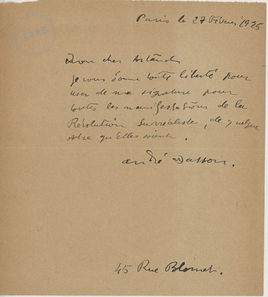 Paris le 27 Février 1925
Mon cher Artaud
je vous donne toute liberté pour
user de ma signature pour
toutes les manifestations de la
Révolution Surréaliste, de quelque
ordre qu'elles soient.
André Masson.
45 Rue Blomet.